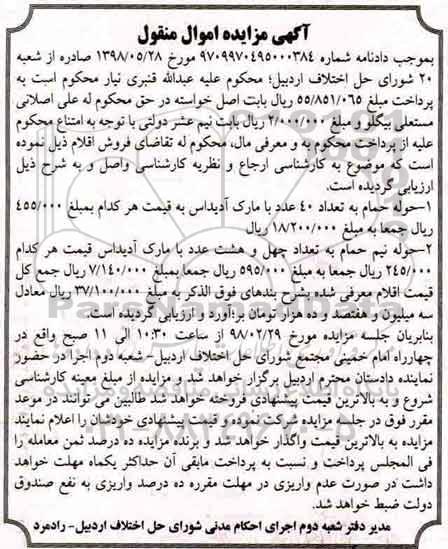 آگهی مزایده اموال منقول
بموجب دادنامه شماره ۹۷۰۹۹۷۰۴۹۵۰۰۰۳۸۴ مورخ ۱۳۹۸/۰۵/۲۸ صادره از شعبه
۲۰ شورای حل اختلاف اردبیل؛ محکوم علیه عبدالله قنبری نیار محکوم است به
پرداخت مبلغ ۵۵/۸۵۱/۰۶۵ ریال بابت اصل خواسته در حق محکوم له علی اصلانی
مستعلی بیگلو و مبلغ ۲/۰۰۰/۰۰۰ ریال بابت نیم عشر دولتی با توجه به امتناع محکوم
علیه از پرداخت محکوم به و معرفی مال، محکوم له تقاضای فروش اقلام ذیل نموده
است که موضوع به کارشناسی ارجاع و نظریه کارشناسی واصل و به شرح ذیل
ارزیابی گردیده است.
۱-حوله حمام به تعداد ۴۰ عدد با مارک آدیداس به قیمت هر کدام بمبلغ ۴۵۵/۰۰۰
ریال جمعا به مبلغ ۱۸/۲۰۰/۰۰۰ ریال
۲-حوله نیم حمام به تعداد چهل و هشت عدد با مارک آدیداس قیمت هر کدام
۲۴۵/۰۰۰ ریال جمعا به مبلغ ۵۹۵/۰۰۰ ریال جمعا بمبلغ ۷/۱۴۰/۰۰۰ ریال جمع کل
قیمت اقلام معرفی شده بشرح بندهای فوق الذکر به مبلغ ۳۷/۱۰۰/۰۰۰ ریال معادل
سه میلیون و هفتصد و ده هزار تومان برآورد و ارزیابی گردیده است.
بنابریان جلسه مزایده مورخ ۹۸/۰۲/۲۹ از ساعت ۱۰:۳۰ الی ۱۱ صبح واقع در
چهارراه امام خمینی مجتمع شورای حل اختلاف اردبیل-شعبه دوم اجرا در حضور
نماینده دادستان محترم اردبیل برگزار خواهد شد و مزایده از مبلغ معینه کارشناسی
شروع و به بالاترین قیمت پیشنهادی فروخته خواهد شد طالبین می توانند در موعد
مقرر فوق در جلسه مزایده شرکت نموده و قیمت پیشنهادی خودشان را اعلام نمایند
مزایده به بالاترین قیمت واگذار خواهد شد و برنده مزایده ده درصد ثمن معامله را
فی المجلس پرداخت و نسبت به پرداخت مابقی آن حداکثر یکماه مهلت خواهد
داشت در صورت عدم واریزی در مهلت مقرره ده درصد واریزی به نفع صندوق
دولت ضبط خواهد شد.
مدیر دفتر شعبه دوم اجرای احکام مدنی شورای حل اختلاف اردبیل- رادمرد